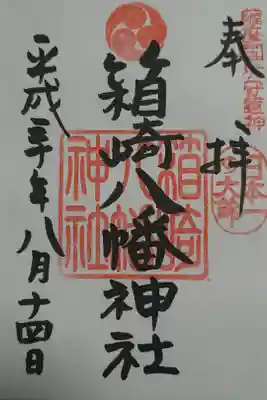 奉拝
箱崎八幡神社
平成三十年八月十四日
箱崎八幡神社
日本一